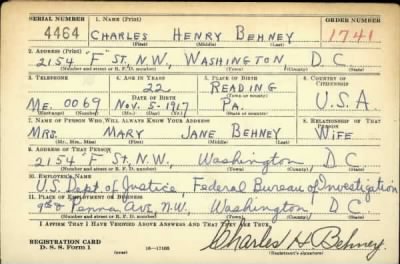 SERIAL NUMBER 1. NAME (Print) ORDER NUMBER
4464 CHARLES HENRY BEHNEY 1741
(First) (Middle) (Last)
2. ADDRESS (Print)
2154 "F" ST. N.W., WASHINGTON D.C.
(Number and street or R. F. D. number) (Town) (County) (State)
3. TELEPHONE 4. AGE IN YEARS 5. PLACE OF BIRTH 6. COUNTRY OF CITIZENSHIP
22 READING
DATE OF BIRTH (Town or county)
ME. 0069 NOV. 5-1917 PA. U.S.A
(Exchange) (Number) (Mo.) (Day) (Yr.) (State or country)
7. NAME OF PERSON WHO WILL ALWAYS KNOW YOUR ADDRESS 8. RELATIONSHIP OF THAT PERSON
MRS. MARY JANE BEHNEY WIFE
(Mr., Mrs., Miss) (First) (Middle) (Last)
9. ADDRESS OF THAT PERSON
2154 "F" St. N.W., Washington D C
(Number and street or R. F. D. number) (Town) (County) (State)
10. EMPLOYER'S NAME
U.S. Dept. of Justice, Federal Bureau of Investigation
11. PLACE OF EMPLOYMENT OR BUSINESS
9th & Penna Ave, N.W., Washington D C.
(Number and street or R. F. D. number) (Town) (County) (State)
I AFFIRM THAT I HAVE VERIFIED ABOVE ANSWERS AND THAT THEY ARE TRUE.
REGISTRATION CARD
D. S. S. Form 1 (over) 16—17105 Charles H Behney.
(Registrant's signature)